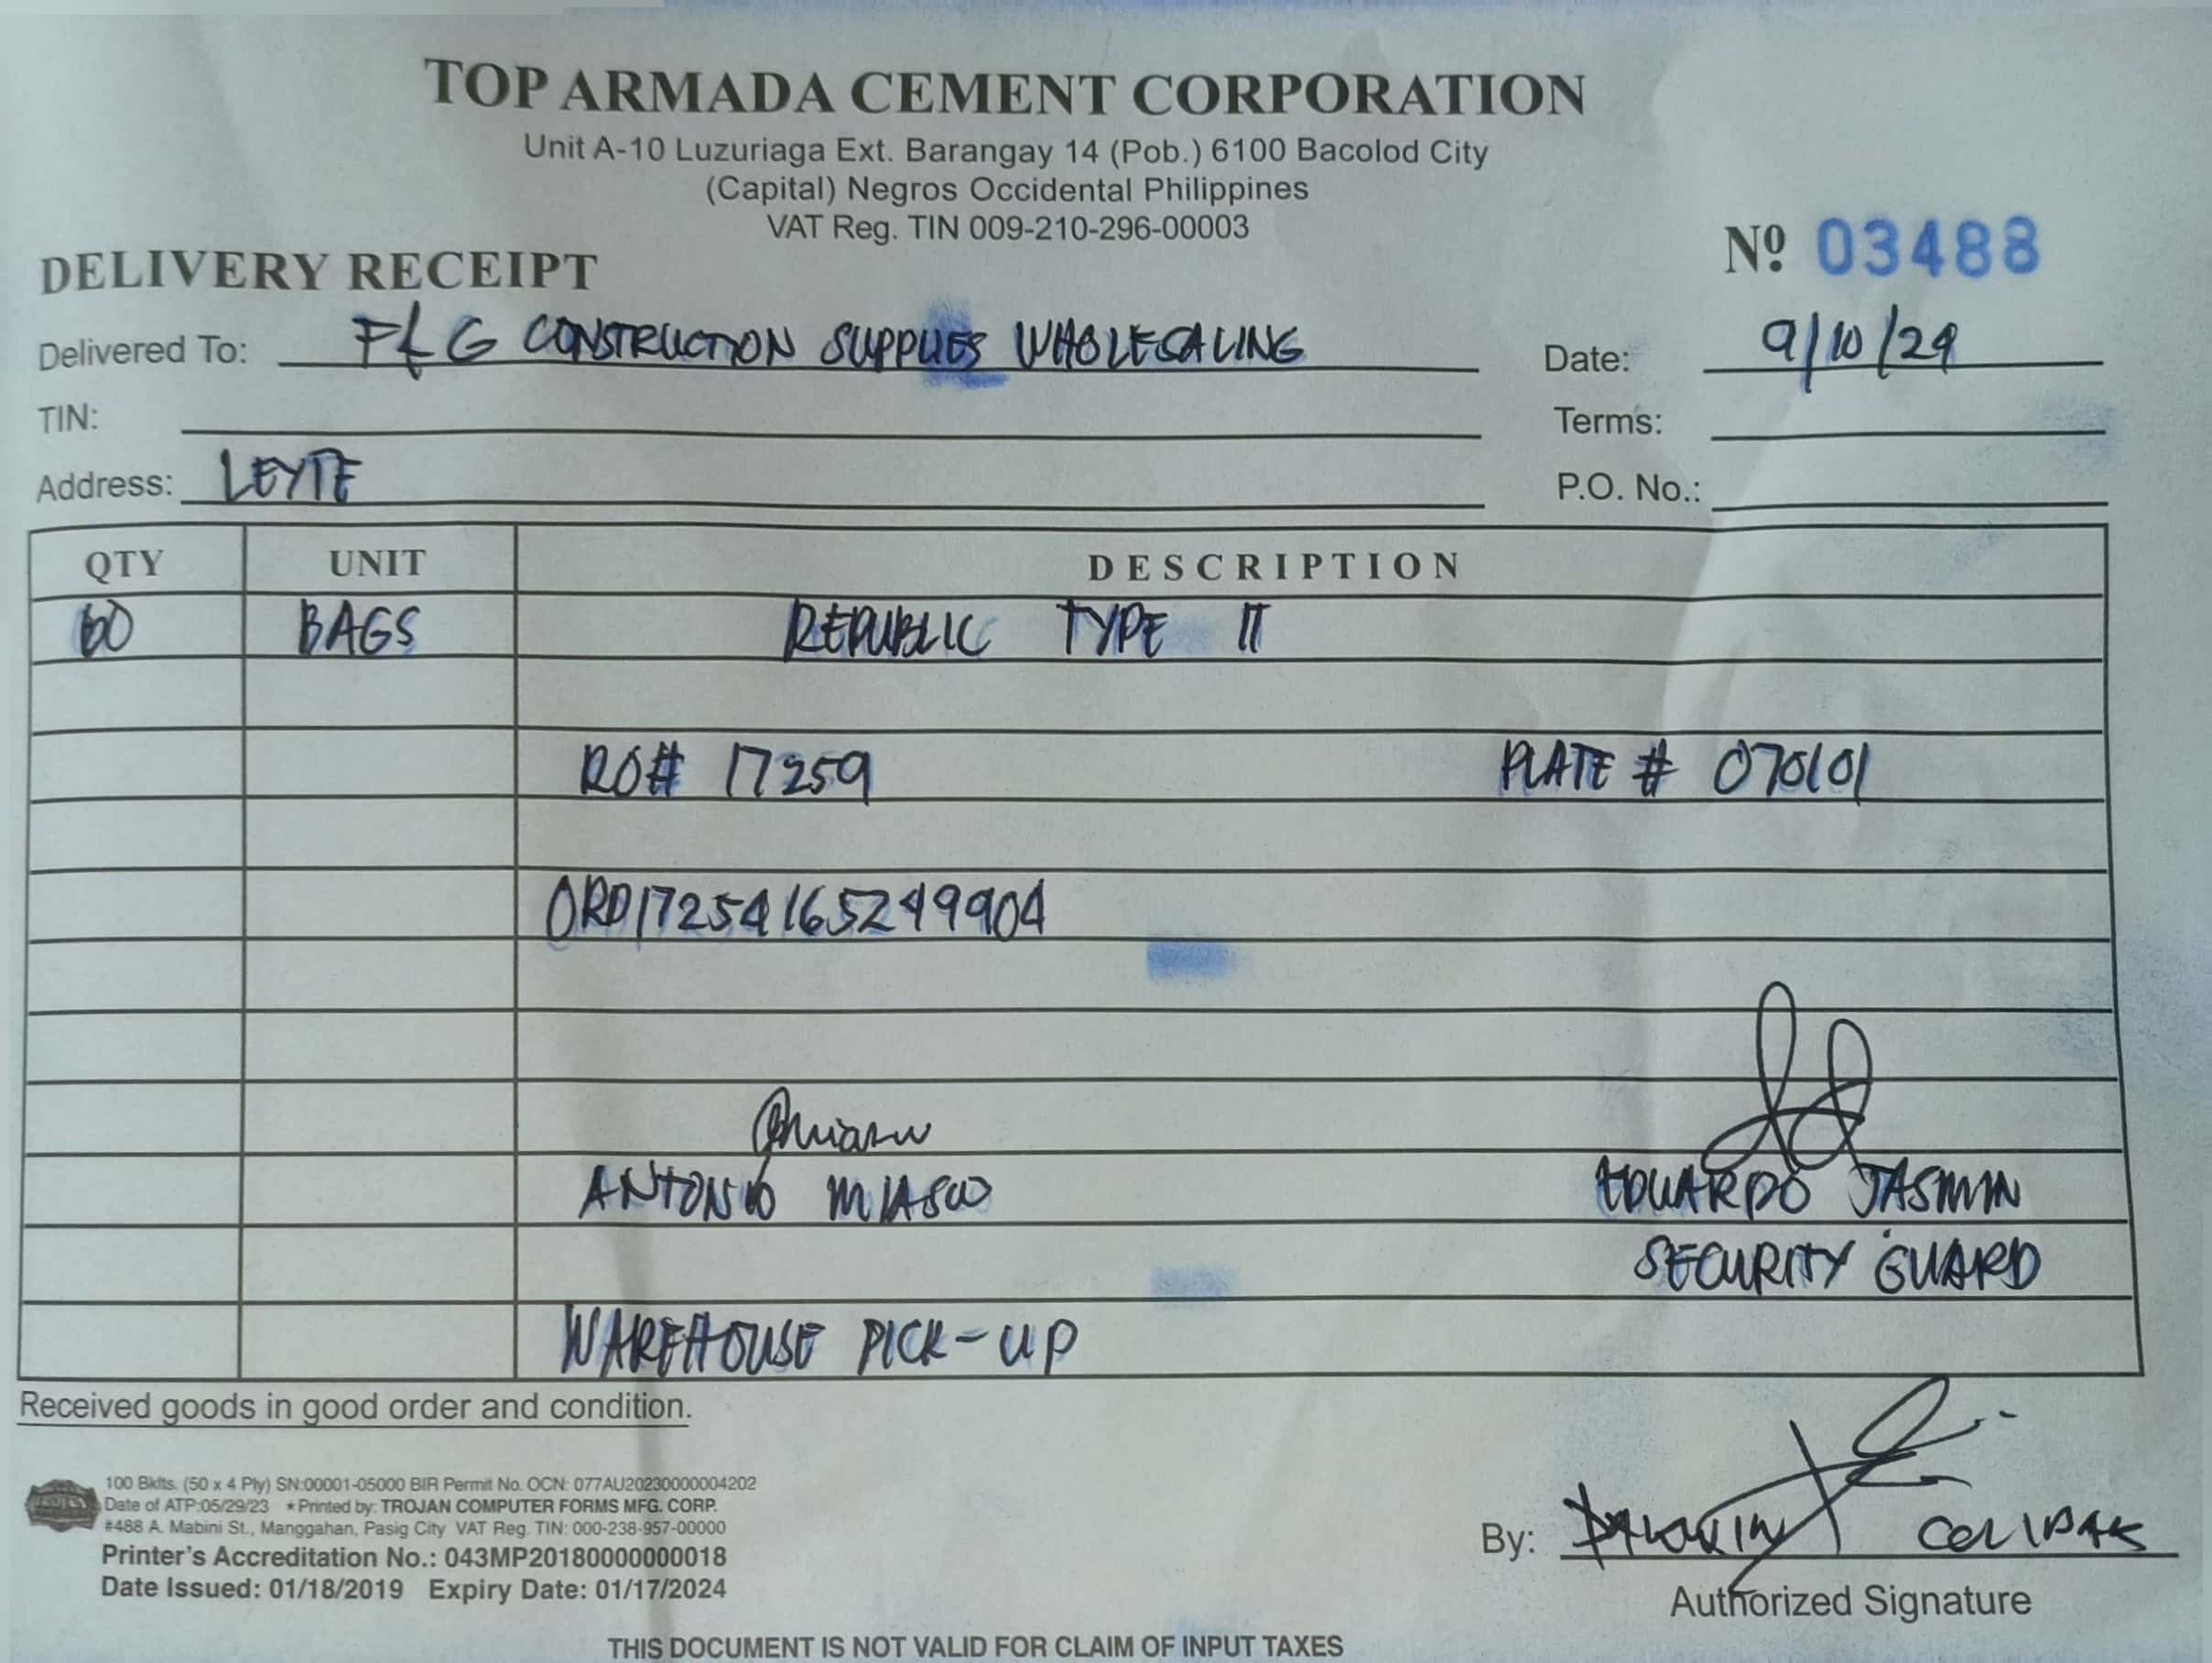 TOP ARMADA CEMENT CORPORATION
Unit A-10 Luzuriaga Ext. Barangay 14 (Pob.) 6100 Bacolod City
(Capital) Negros Occidental Philippines
VAT Reg. TIN 009-210-296-00003
Nº 03488
DELIVERY RECEIPT
Delivered To: F&G CONSTRUCTION SUPPLIES WHOLESALING Date: 9/10/24
TIN: Terms:
Address: LEYTE P.O. No.:
QTY UNIT DESCRIPTION
60 BAGS REPUBLIC TYPE II
RO# 17259 PLATE # 070101
ORD17254165249904
ANTONIO MIASCO EDUARDO JASMIN
SECURITY GUARD
WAREHOUSE PICK-UP
Received goods in good order and condition.
100 Bklts. (50 x 4 Ply) SN:00001-05000 BIR Permit No. OCN: 077AU20230000004202
Date of ATP:05/29/23 ★Printed by: TROJAN COMPUTER FORMS MFG. CORP.
#488 A. Mabini St., Manggahan, Pasig City VAT Reg. TIN: 000-238-957-00000
Printer's Accreditation No.: 043MP20180000000018
Date Issued: 01/18/2019 Expiry Date: 01/17/2024
By:
Authorized Signature
THIS DOCUMENT IS NOT VALID FOR CLAIM OF INPUT TAXES